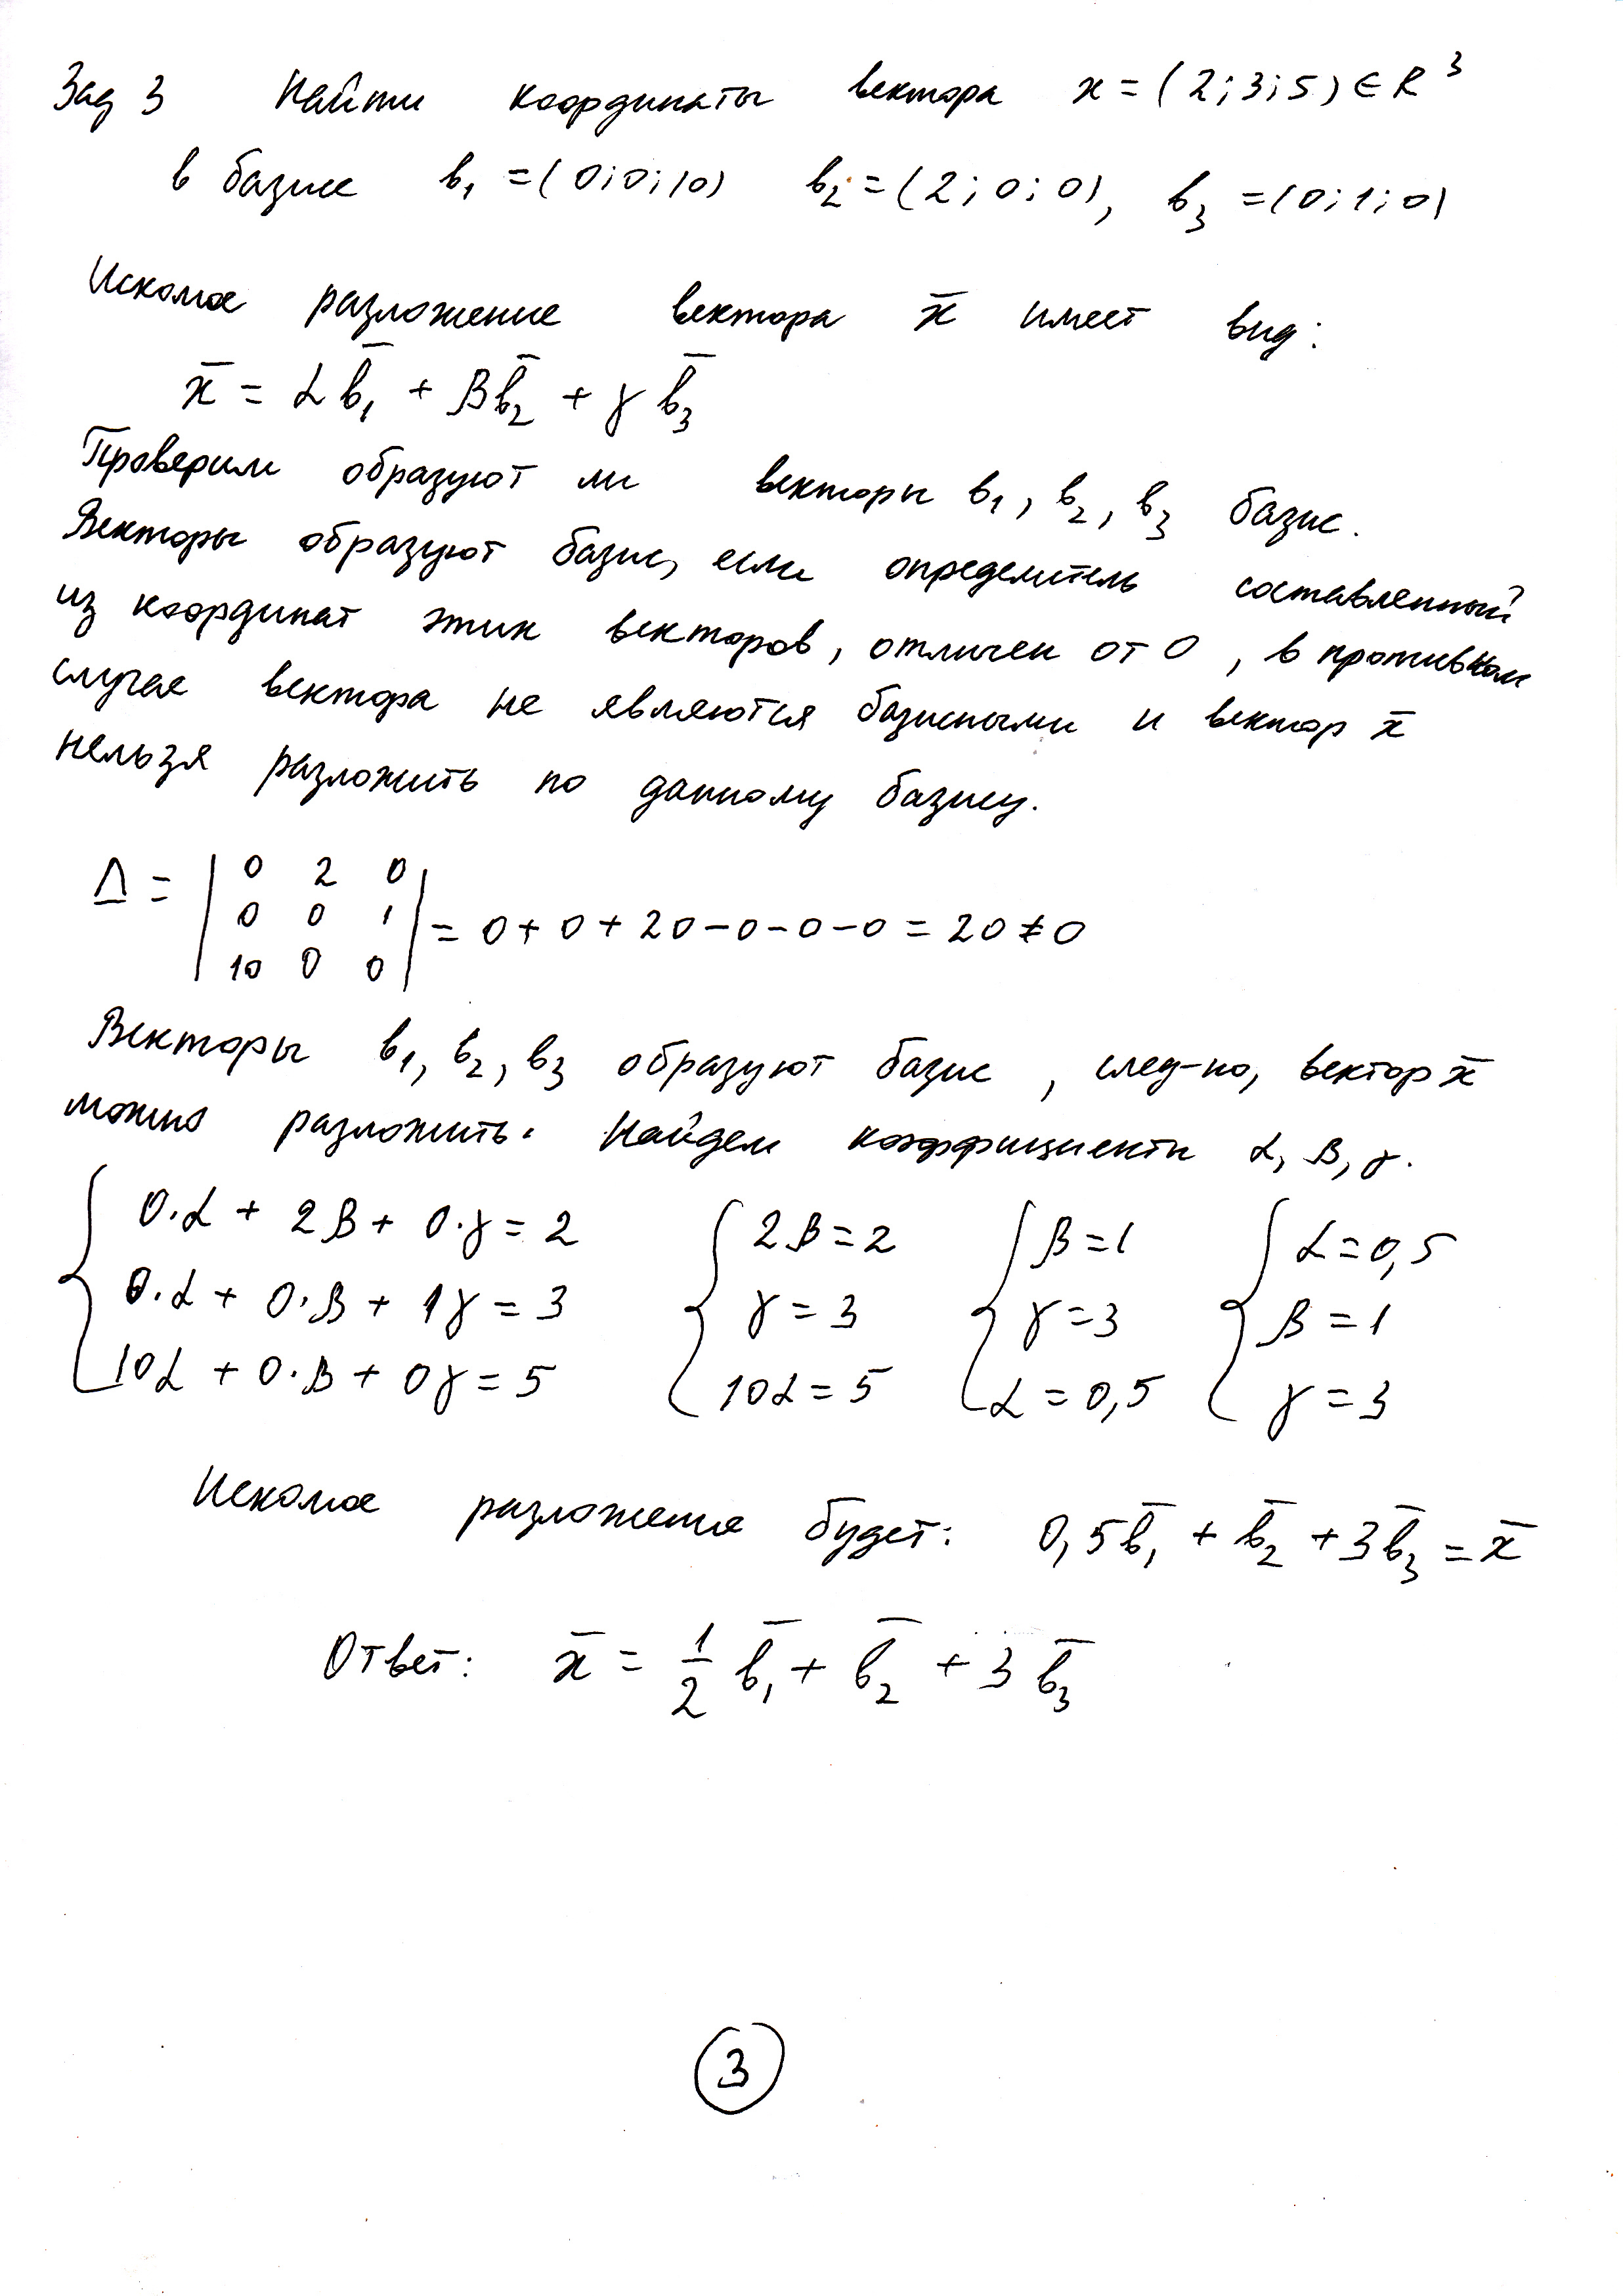 Зад 3 Найти координаты вектора x = (2; 3; 5) ∈ R³
в базисе b₁ = (0; 0; 10) b₂ = (2; 0; 0), b₃ = (0; 1; 0)
Искомое разложение вектора x̄ имеет вид:
x̄ = αb̄₁ + βb̄₂ + γb̄₃
Проверим образуют ли векторы b₁, b₂, b₃ базис.
Векторы образуют базис, если определитель составленный
из координат этих векторов, отличен от 0, в противном
случае вектора не являются базисными и вектор x̄
нельзя разложить по данному базису.
Δ = | 0 2 0 |
| 0 0 1 | = 0 + 0 + 20 - 0 - 0 - 0 = 20 ≠ 0
| 10 0 0 |
Векторы b₁, b₂, b₃ образуют базис, след-но, вектор x̄
можно разложить. Найдем коэффициенты α, β, γ.
{ 0·α + 2β + 0·γ = 2 { 2β = 2 { β = 1 { α = 0,5
0·α + 0·β + 1γ = 3 γ = 3 γ = 3 β = 1
10α + 0·β + 0γ = 5 10α = 5 α = 0,5 γ = 3
Искомое разложение будет: 0,5b̄₁ + b̄₂ + 3b̄₃ = x̄
Ответ: x̄ = 1/2 b̄₁ + b̄₂ + 3b̄₃
3